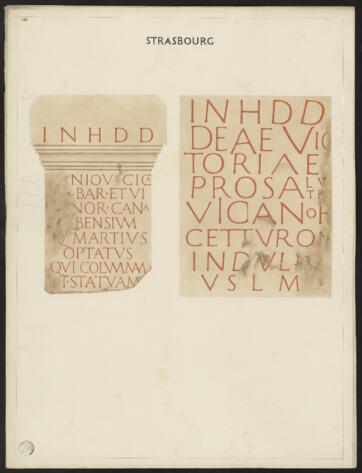 STRASBOURG
I N H D D
NIOV CIC
BAR·ET VI
NOR·CANA
BENSIVM
Q MARTIVS
OPTATVS
QVI COLVMNAM
T·STATVAM
I N H D D
DEAE VIC
TORIAE
PROSALV
VICAN
CETTVRO
INDVLI
V S L M